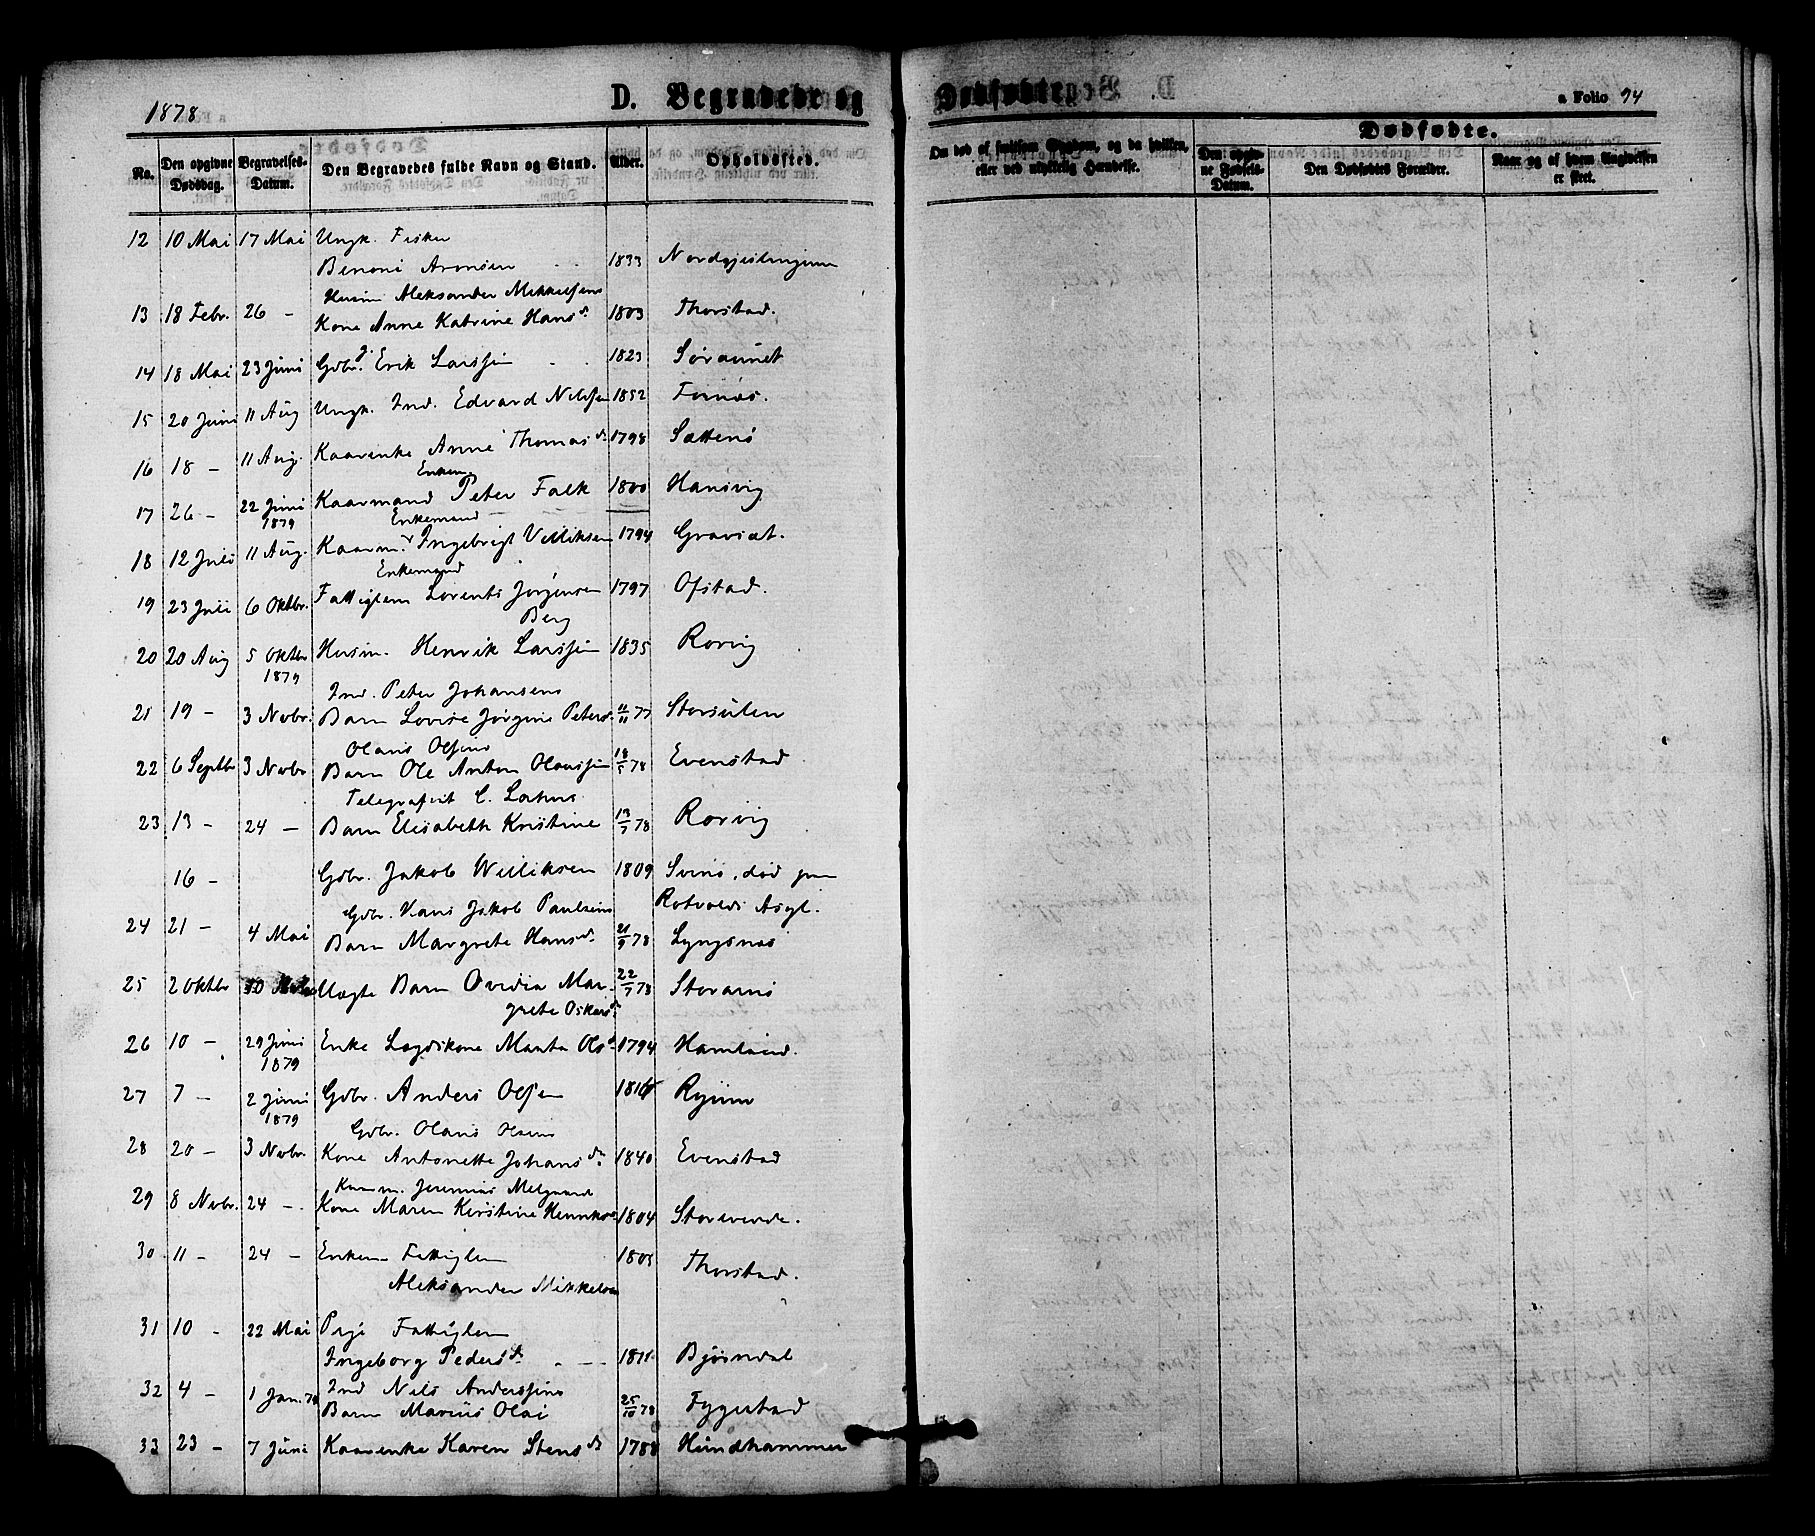 1878
D. Begravede og Dødfødte.
a Folio 94
No.
Den opgivne Dødsdag.
Begravelses-Datum.
Den Begravedes fulde Navn og Stand.
Alder.
Opholdssted.
Om død af smitsom Sygdom, og da hvilken, eller ved ulykkelig Hændelse.
Dødfødte.
Den opgivne Fødsels-Datum.
Den Dødfødtes Forældre.
Naar og af hvem Angivelsen er skeet.
12 10 Mai 17 Mai Ungk. Fisker
Benoni Aronsen 1833
Husm Aleksander Mikkelsens
13 18 Febr. 26 - Kone Anne Katrine Hansd. 1803 Thorstad.
14 18 Mai 23 Juni Gdbr. Erik Larssen 1823 Søraunet
15 20 Juni 11 Aug Ungk. Ind. Edvard Nilssen 1852 Fornæs.
16 18 - 11 Aug. Kaarenke Anne Thomasd. 1798 Sættenø
Enkem
17 26 - 22 Juni 1879 Kaarmand Peter Falk 1800 Hansvig
Enkemand
18 12 Juli 11 Aug. Kaarm. Ingebrigt Velliksen 1794 Graviat.
Enkemand
19 23 Juli 6 Oktbr. Fattiglem Lorents Jørgensen 1797 Ofstad.
Berg
20 20 Aug 5 Oktbr 1879 Husm. Henrik Larssen 1835 Rørvig
Ind. Peter Johansens
21 19 - 3 Novbr. Barn Lovise Jørgine Peters. 11/11 77 Storsulen
Olaus Olsens
22 6 Septbr 3 Novbr Barn Ole Anton Olaussen 18/5 78 Evenstad
Telegrafist C.
23 13 - 24 - Barn Elisabeth Kristine 13/7 78 Rørvig
16 - Gdbr. Jakob Williksen 1809 Svinø, død paa
Rotvolds Asyl.
Gdbr. Hans Jakob Paulsens
24 21 - 4 Mai Barn Margrete Hansd. 21/9 78 Lyngsnæs
25 2 Oktbr 10 Uægte Barn Ovidia Mar- 22/7 78 Storarnø
grete Oskarsd.
26 10 - 29 Juni 1879 Enke Lægdskone Marta Olsd 1794 Hamland.
27 7 - 2 Juni 1879 Gdbr. Anders Olsen 1816 Ryum
Gdbr. Olaus Olsens
28 20 - 3 Novbr. Kone Antonette Johansd. 1840 Evenstad
Kaarm. Jeremias Melgaards
29 8 Novbr. 24 -. Kone Maren Kirstine 1804
30 11 - 24 - Enkem Fattiglem 1803 Thorstad.
Aleksander Mikkelsen
31 10 - 22 Mai Pige Fattiglem
Ingeborg Pedersd. 1811 Bjørndal
32 4 - 1 Jan. 79 Ind Nils Anderssens
Barn Marius Olai 25/10 78 Fygestad
33 23 - 7 Juni Kaarenke Karen Stensd. 1788 Hundhammer